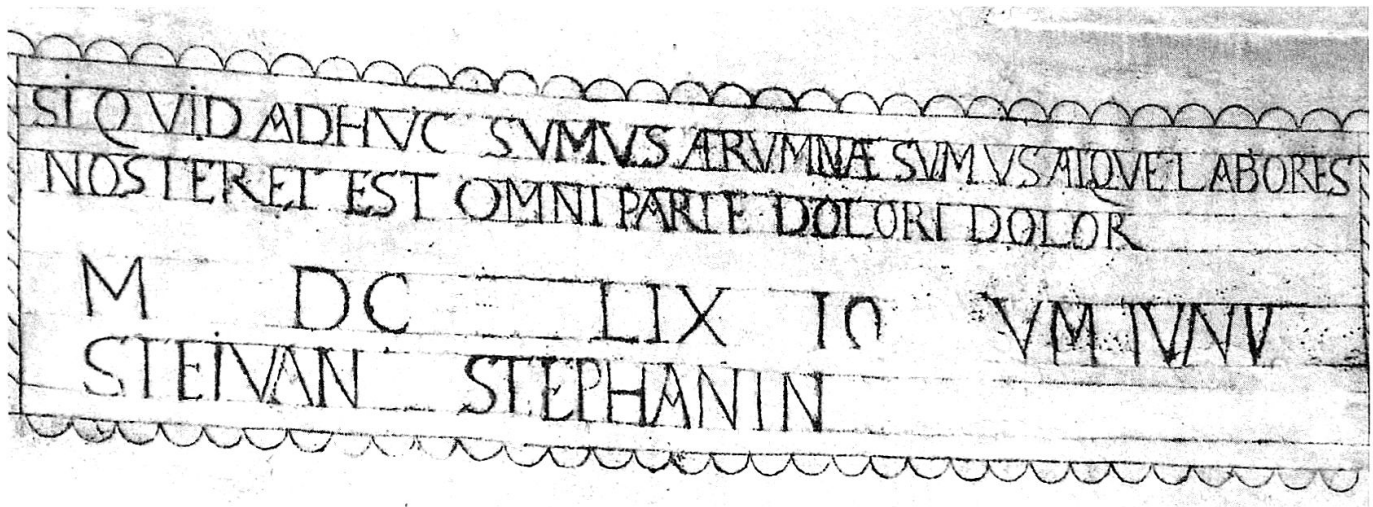 SI QVID ADHVC SVMVS ÆRVMNÆ SVMVS ATQVE LABORES
NOSTER ET EST OMNI PARTE DOLORI DOLOR
M DC LIX IO VM IVNV
STEIVAN STEPHANIN